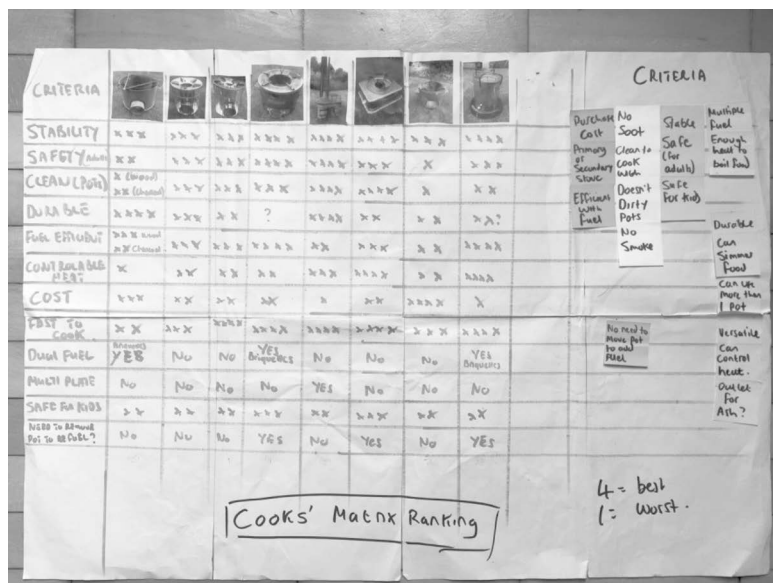 CRITERIA
STABILITY xxx xxx xxx xxxx xxxx xxxx xxx xxxx
SAFETY (Adults) xx xxx xxx xxxx xxxx xxx x xxx
CLEAN (Pots) x (wood) xx (charcoal) xxx xx xxx xxxx x xx
DURABLE xxxx xxx xx ? xxxx xx xx xx?
FUEL EFFICIENT xxx wood xx charcoal xxx xxx xxxx xx xx xxxx
CONTROLABLE HEAT x xx xx xx xxxx xx xxxx
COST xxx xx xx xx x xx xxxx x
FAST TO COOK xx xxx xxxx xxxx xxxx xxxx xxx xxxx
DUAL FUEL YES No No YES Briquettes No No No YES Briquettes
MULTI PLATE No No No No YES No No No
SAFE FOR KIDS xx xx xx xxx xx xxx xx xx
NEED TO REMOVE POT TO REFUEL? No No No YES No Yes No YES
Cooks' Matrix Ranking
CRITERIA
Purchase Cost
Primary or Secondary Stove
Efficient with Fuel
No Soot
Clean to cook with
Doesn't Dirty Pots
No Smoke
Stable
Safe (for adults)
Safe for kids
Multiple fuel
Enough heat to boil food
Durable
Can Simmer food
Can use more than 1 Pot
No need to Move Pot to add fuel
Versatile
Can control heat.
Outlet for Ash?
4 = best
1 = worst.